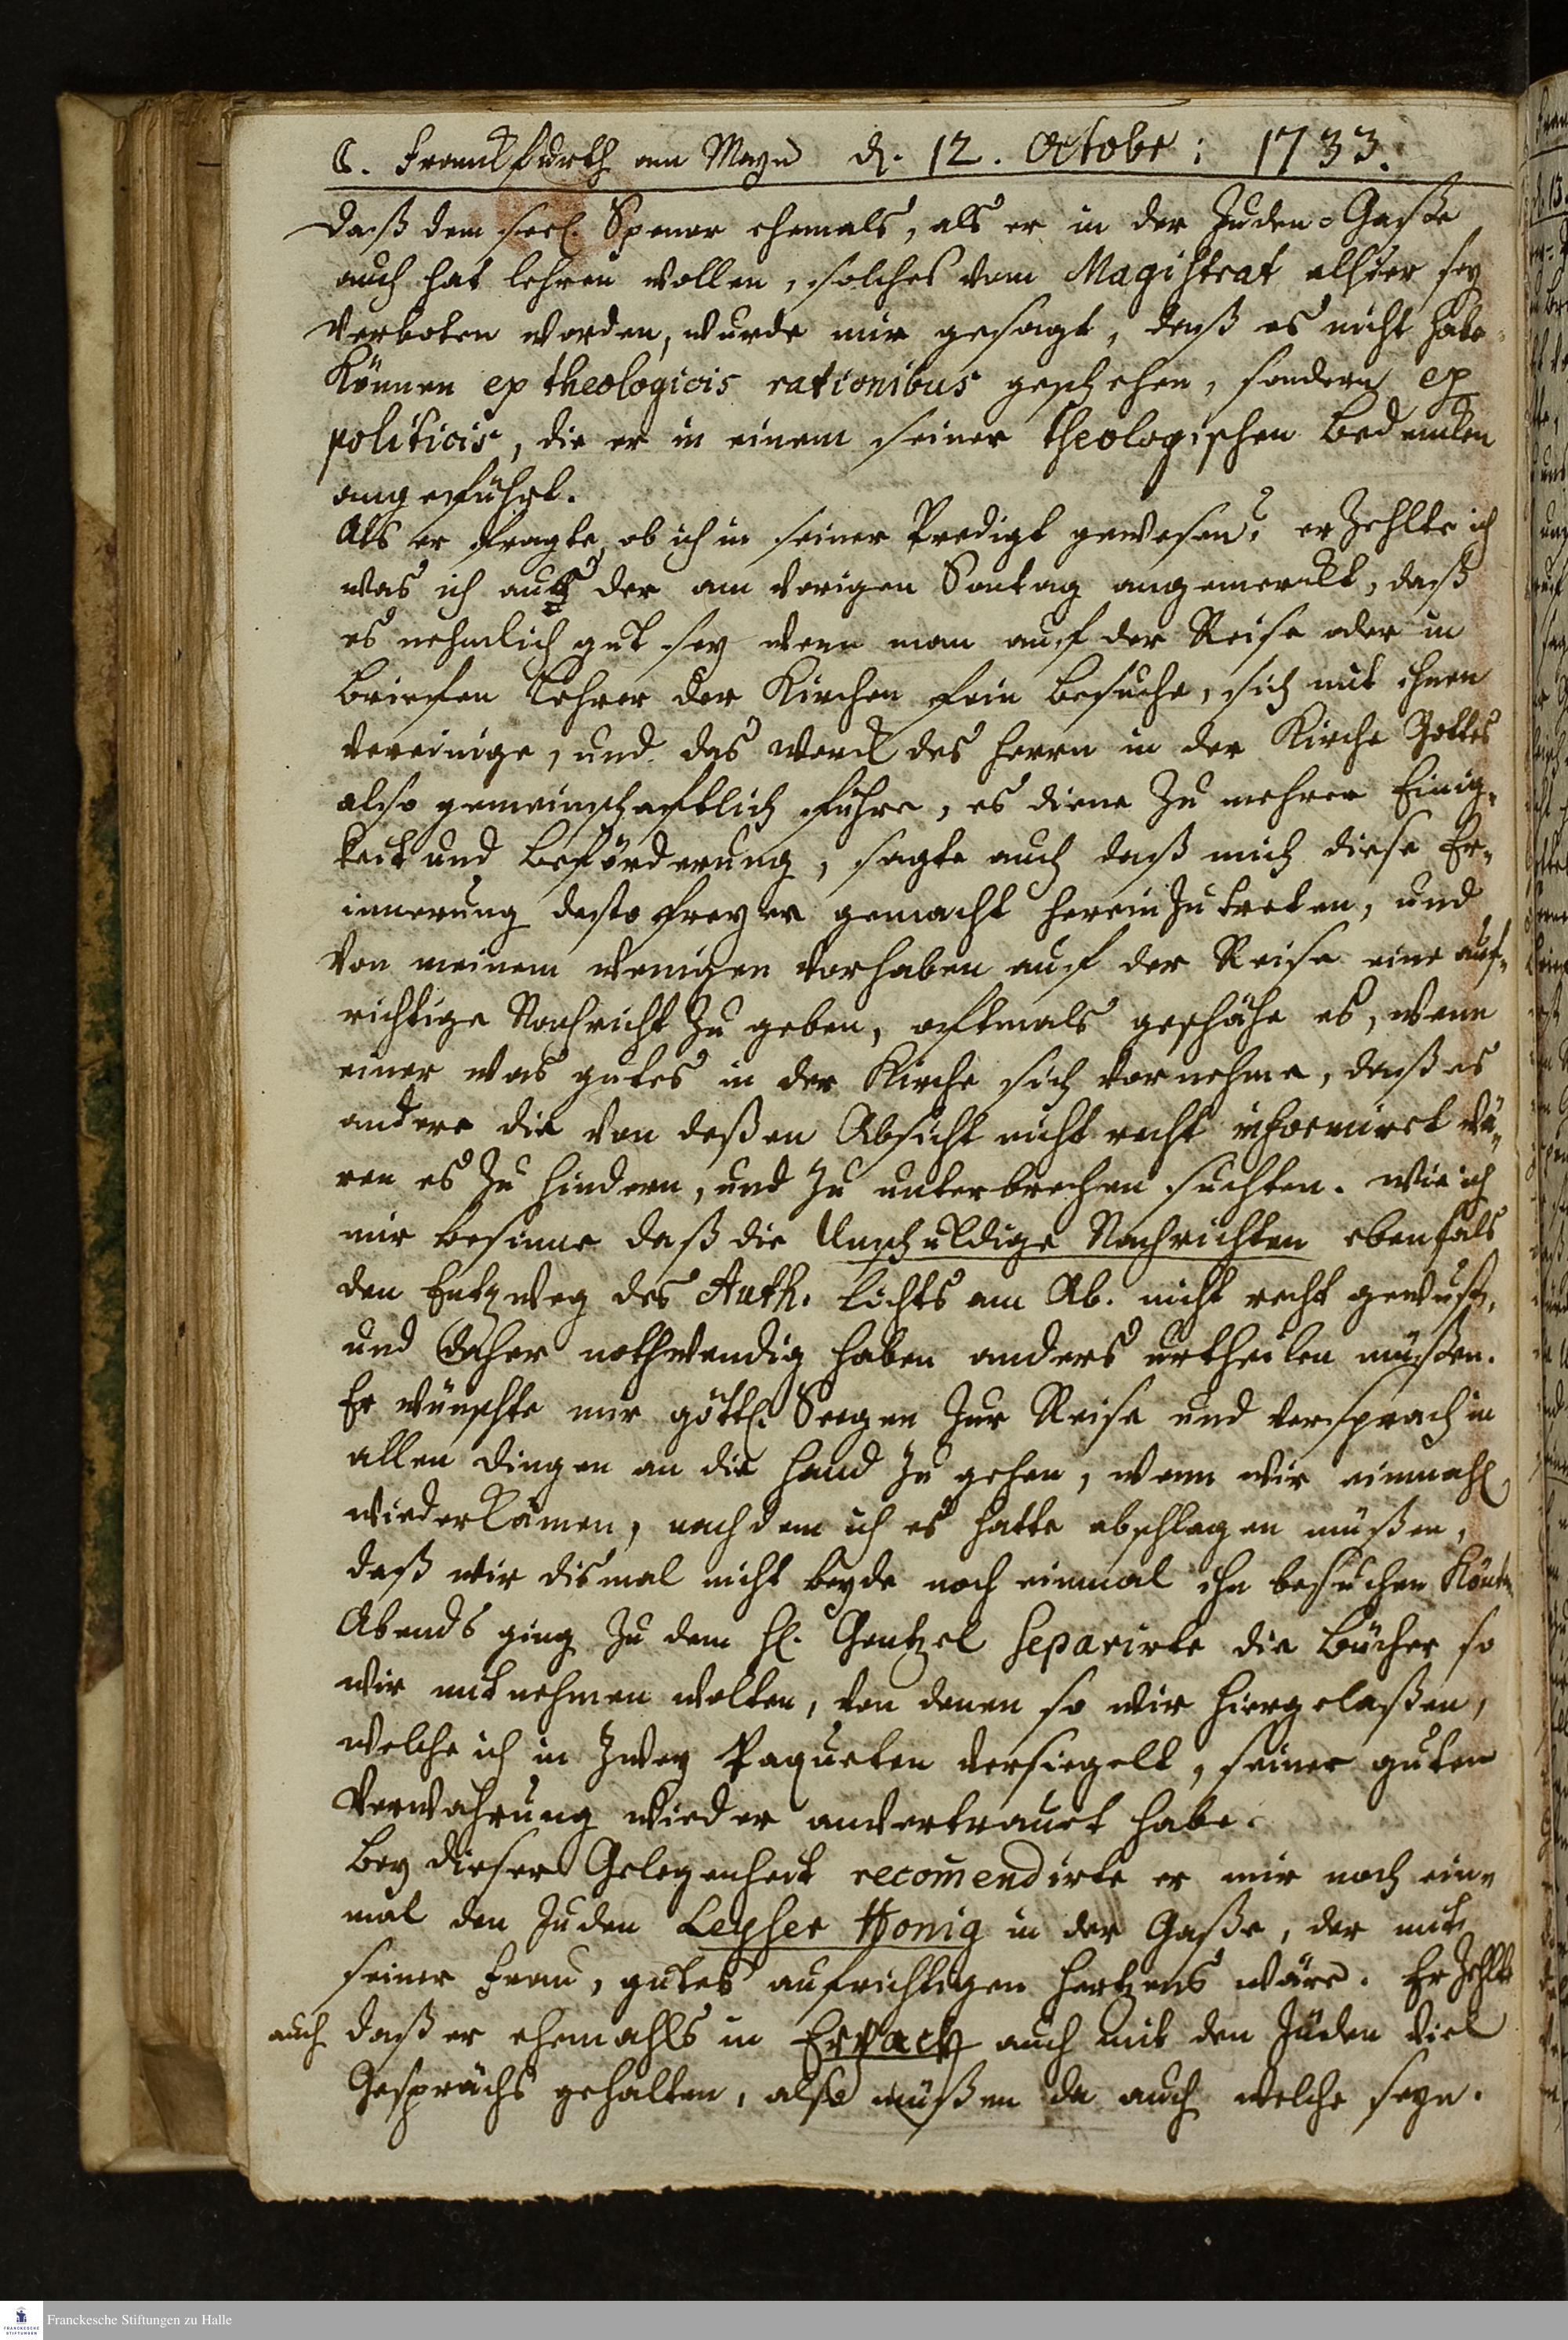 C. Franckfurth am Mayn d. 12. Octobr: 1733.
daß dem seel. Spener ehemals, als er in der Juden-Gaße
auch hat lehren wollen, solches vom Magistrat alhier sey
verboten worden, wurde mir gesagt, daß es nicht habe
können ex theologicis rationibus geschehen, sondern ex
politicis, die er in einem seiner theologischen Bedencken
angeführt.
Als er fragte, ob ich in seiner Predigt gewesen? erzehlte ich
was ich aus der am vorigen Sontag angemerckt, daß
es nehmlich gut sey wenn man auf der Reise oder in
Briefen Lehrer der Kirchen fein besuche, sich mit ihnen
vereinige, und das Werck des Herrn in der Kirche Gottes
also gemeinschaftlich führe, es diene zu mehrer Einig-
keit und Beförderung, sagte auch daß mich diese Er-
innerung desto freyer gemacht hereinzutreten, und
von meinem wenigen Vorhaben auf der Reise eine auf-
richtige Nachricht zu geben, oftmals geschähe es, wenn
einer was gutes in der Kirche sich vornehme, daß es
andere die von deßen Absicht nicht recht informirt wä-
ren es zu hindern, und zu unterbrechen suchten. Wie ich
mir besinne daß die Unschuldige Nachrichten ebenfals
den Entzweg des Auth. Lichts am Ab. nicht recht gewust,
und daher nothwendig haben anders urtheilen müßen.
Er wünschte mir göttl. Seegen zur Reise und versprach in
allen Dingen an die Hand zu gehen, wenn wir einmahl
wiederkämen, nachdem ich es hatte abschlagen müßen,
daß wir dismal nicht beyde noch einmal ihn besuchen könten
Abends ging zu dem H. Gentzel separirte die Bücher so
wir mitnehmen wolten, von denen so wir hiergelaßen,
welche ich in zwey Paqueten versiegelt, seiner guten
Verwahrung wieder anvertrauet habe.
Bey dieser Gelegenheit recomendirte er mir noch ein-
mal den Juden Leyser Honig in der Gaße, der mit
seiner Frau, gutes aufrichtigen Hertzens wäre. Er zehlte
auch daß er ehemahls in Erpach auch mit den Juden viel
Gesprächs gehalten, also müßen da auch welche seyn.
Franckesche Stiftungen zu Halle
FRANCKESCHE STIFTUNGEN